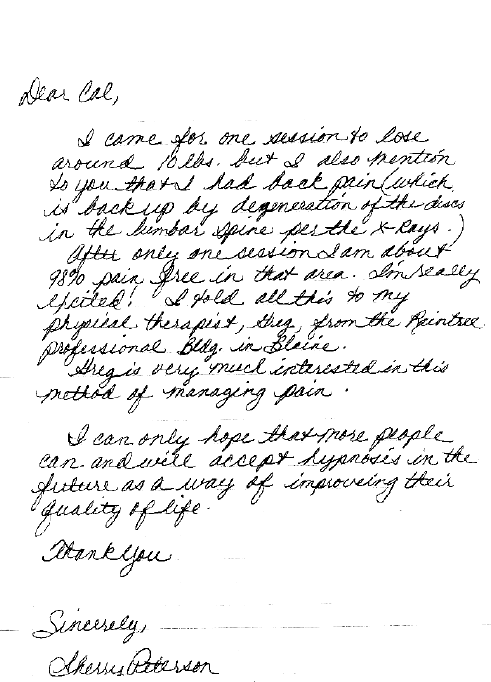 Dear Cal,
I came for one session to lose
around 10 lbs. but I also mention
to you that I had back pain (which
is back up by degeneration of the discs
in the lumbar spine per the X-Rays.)
After only one session I am about
98% pain free in that area. I'm really
excited! I told all this to my
physical therapist, Greg, from the Raintree
Professional Bldg. in Blaine.
Greg is very much interested in this
method of managing pain.
I can only hope that more people
can and will accept hypnosis in the
future as a way of improveing their
quality of life.
Thank You
Sincerely,
Sherry Peterson